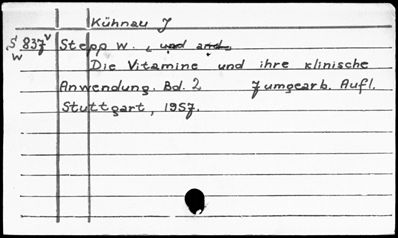 Kühnau J
S 837 v Stepp W. , und and.
w
Die Vitamine und ihre klinische
Anwendung. Bd. 2 7 umgearb. Aufl.
Stuttgart, 1957.